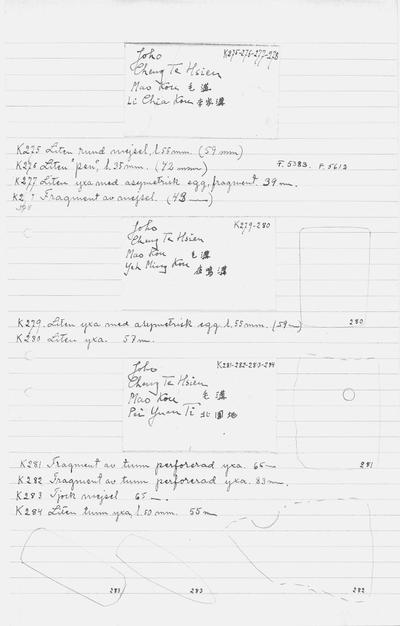 Joho K275-276-277-278
Cheng Te Hsien
Mao Kou 毛溝
Li Chia Kou 李家溝
K275 Liten rund mejsel, l. 55 mm. (59 mm)
K276 Liten "pen", l. 35 mm. (42 mm) F. 5383. F. 5612
K277 Liten yxa med asymetrisk egg, fragment. 39 m.
K2 7 Fragment av mejsel. (43 —)
278
Joho K279-280
Cheng Te Hsien
Mao Kou 毛溝
Yeh Ming Kou 鳴溝
K279. Liten yxa med asymetrisk egg. l. 55 mm. (59 —)
K280 Liten yxa. 57 m.
280
Joho K281-282-283-284
Cheng Te Hsien
Mao Kou 毛溝
Pei Yuan Ti 北園地
K281 Fragment av tunn perforerad yxa. 65 —
K282 Fragment av tunn perforerad yxa. 83 m.
K283 Tjock mejsel 65 —.
K284 Liten tunn yxa, l. 50 mm. 55 m
281
281 283 282